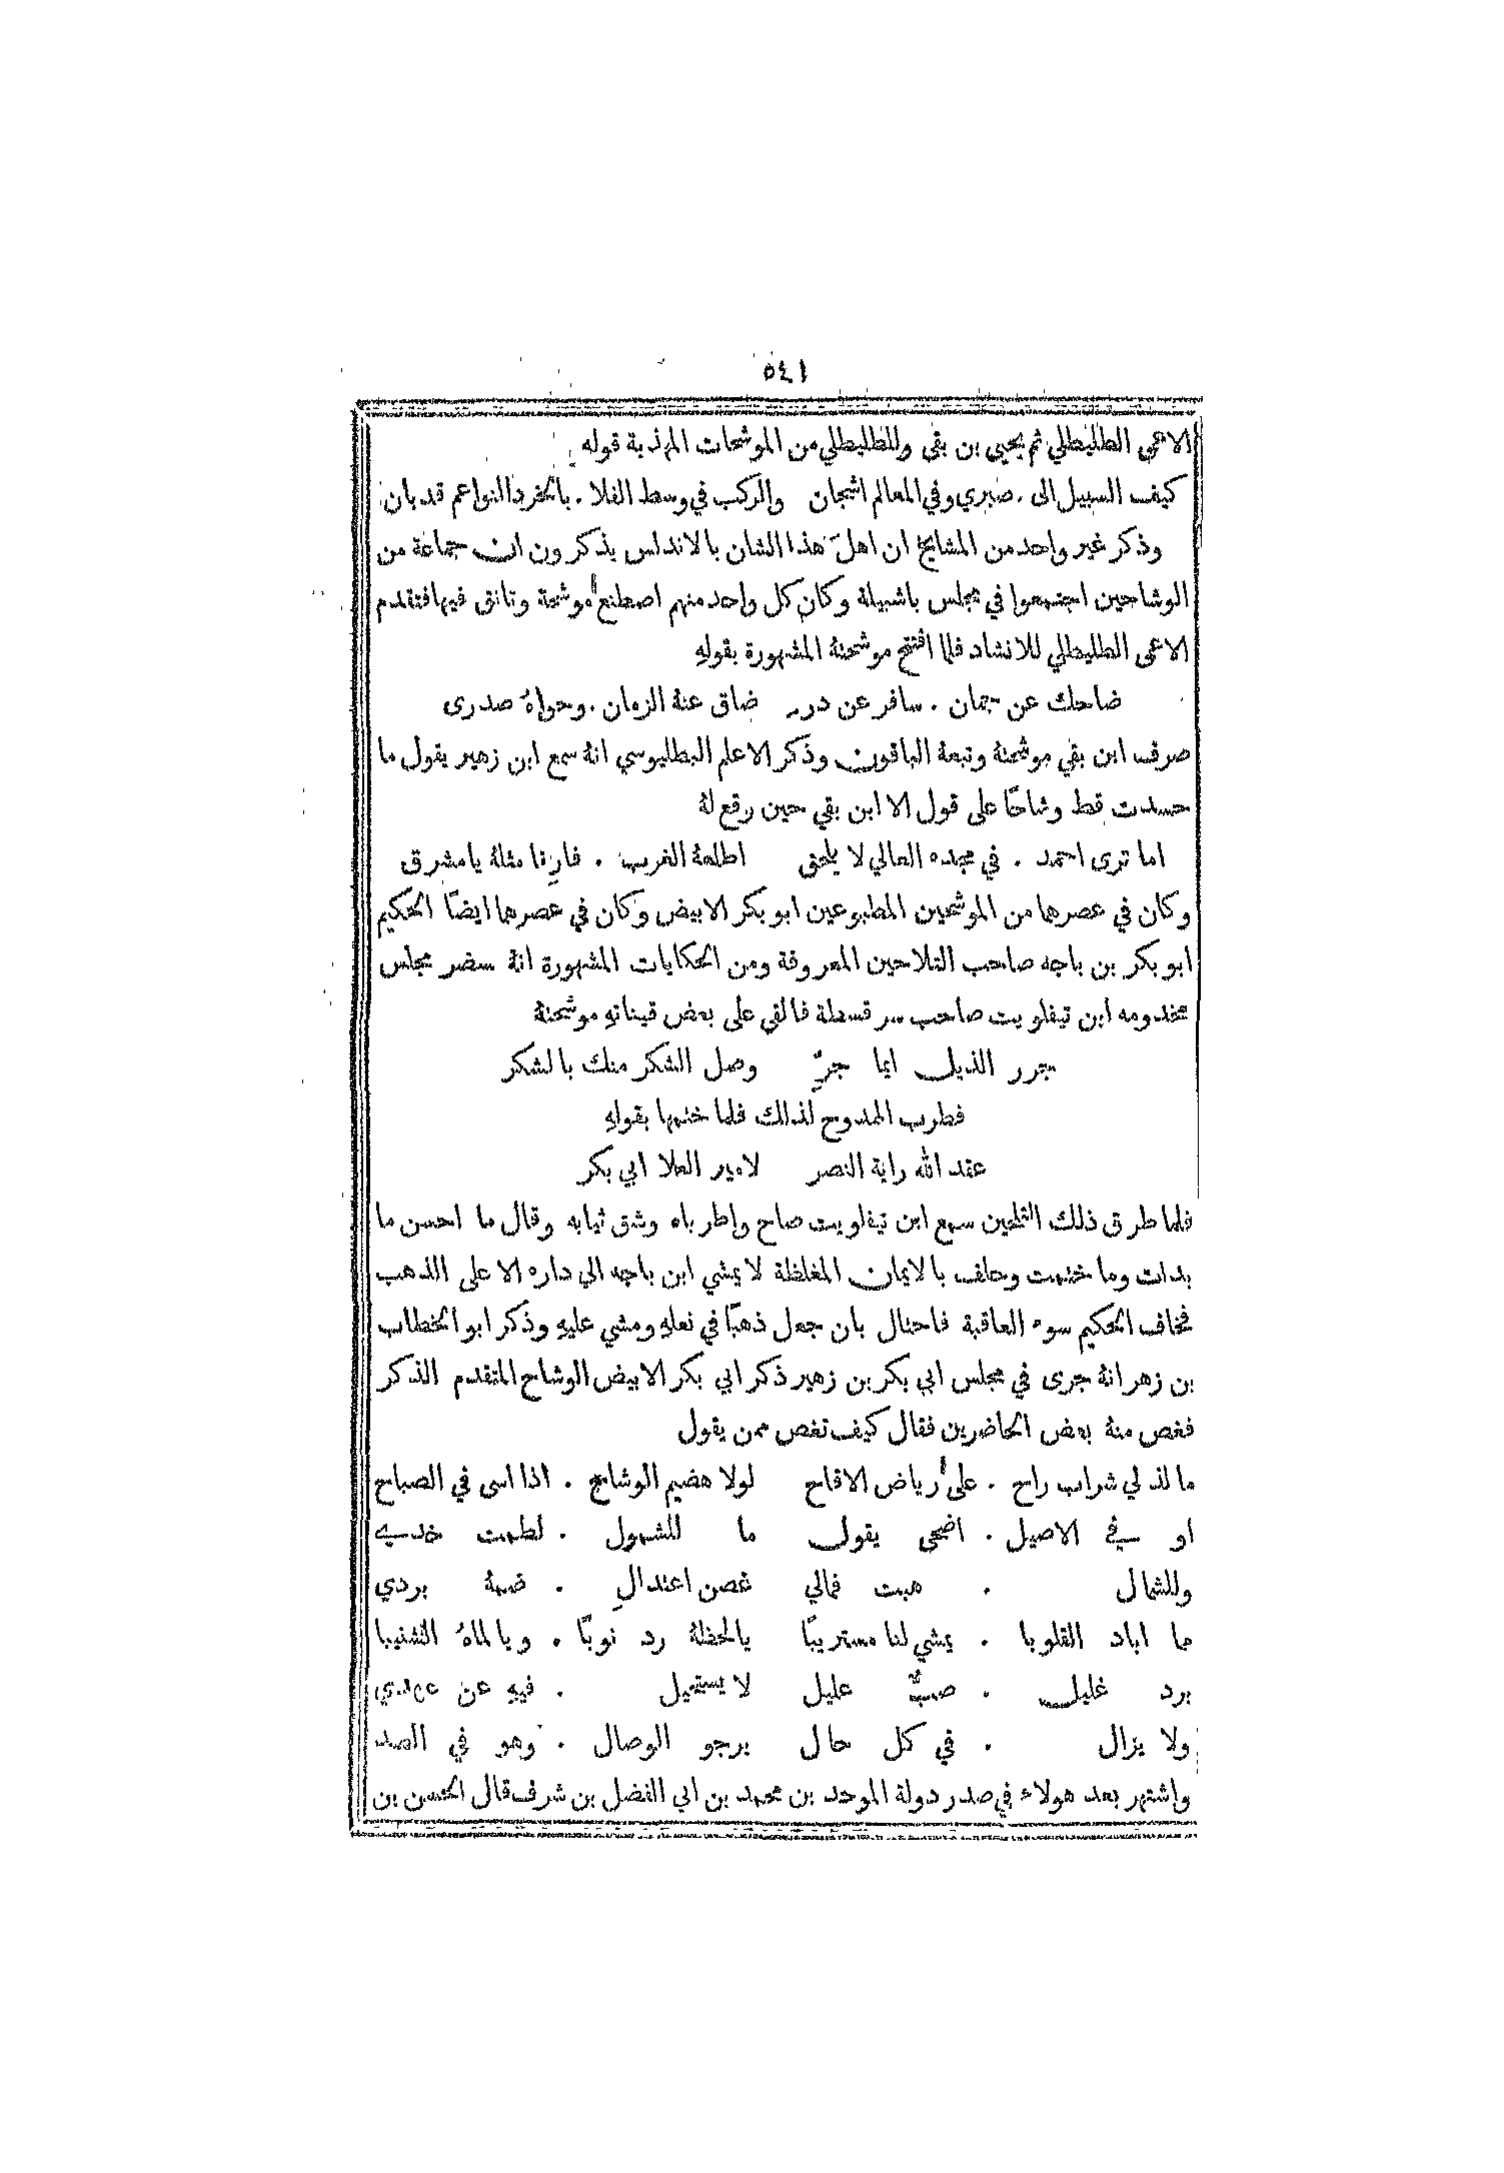 ٥٤١
الاعمى الطليطلي ثم يحيى بن بقي وللطليطلي من الموشحات المهذبة قوله
كيف السبيل الى . صبري وفي المعالم اشجان والركب في وسط الفلا . بالخرد النواعم قد بان
وذكر غير واحد من المشايخ ان اهل هذا الشان بالاندلس يذكرون ان جماعة من
الوشاحين اجتمعوا في مجلس باشبيلة وكان كل واحد منهم اصطنع موشحة وتانق فيها فتقدم
الاعمى الطليطلي للانشاد فلما افتتح موشحتة المشهورة بقولهِ
ضاحك عن جمان . سافر عن در ضاق عنة الزمان . وحواهُ صدرى
صرف ابن بقي موشحتة وتبعة الباقون وذكر الاعلم البطليوسي انة سمع ابن زهير يقول ما
حسدت قط وشاحًا على قول الا ابن بقي حين رقع لة
اما ترى احمد . في مجده العالي لا يلحق اطلعة الغرب . فارنا مثلة يا مشرق
وكان في عصرهما من الموشحين المطبوعين ابو بكر الابيض وكان في عصرهما ايضًا الحكيم
ابو بكر بن باجه صاحب التلاحين المعروفة ومن الحكايات المشهورة انة سضر مجلس
مخدومه ابن تيفلويت صاحب سرقسطة فالقي على بعض قيناتهِ موشحتة
جرر الذيل ايما جرٍّ وصل الشكر منك بالشكر
فطرب الممدوح لذلك فلما ختمها بقولهِ
عقد الله راية النصر لامير العلا ابي بكر
فلما طرق ذلك التلحين سمع ابن تيفلويت صاح واطرباه وشق ثيابه وقال ما احسن ما
بدات وما ختمت وحلف بالايمان المغلظة لا يمشي ابن باجه الي داره الا على الذهب
فخاف الحكيم سوء العاقبة فاحتال بان جعل ذهبًا في نعلهِ ومشي عليهِ وذكر ابو الخطاب
بن زهر انة جرى في مجلس ابي بكر بن زهير ذكر ابي بكر الابيض الوشاح المتقدم الذكر
فغص منة بعض الحاضرين فقال كيف تغص ممن يقول
ما لذ لي شراب راح . على رياض الاقاح لولا هضيم الوشاح . اذا اسى في الصباح
او في الاصيل . اضحى يقول ما للشمول . لطمت خدي
وللشمال . هبت فمالي غصن اعتدالِ . ضمة بردي
ما اباد القلوبا . يمشي لنا مستريبًا يا لحظة رد نوبًا . ويا لماهُ الشنيبا
برد غليل . صبٌّ عليل لا يستحيل . فيهِ عن عهدي
ولا يزال . في كل حال يرجو الوصال . وهو في الصد
واشتهر بعد هولاء في صدر دولة الموحد بن محمد بن ابي الفضل بن شرف قال الحسن بن